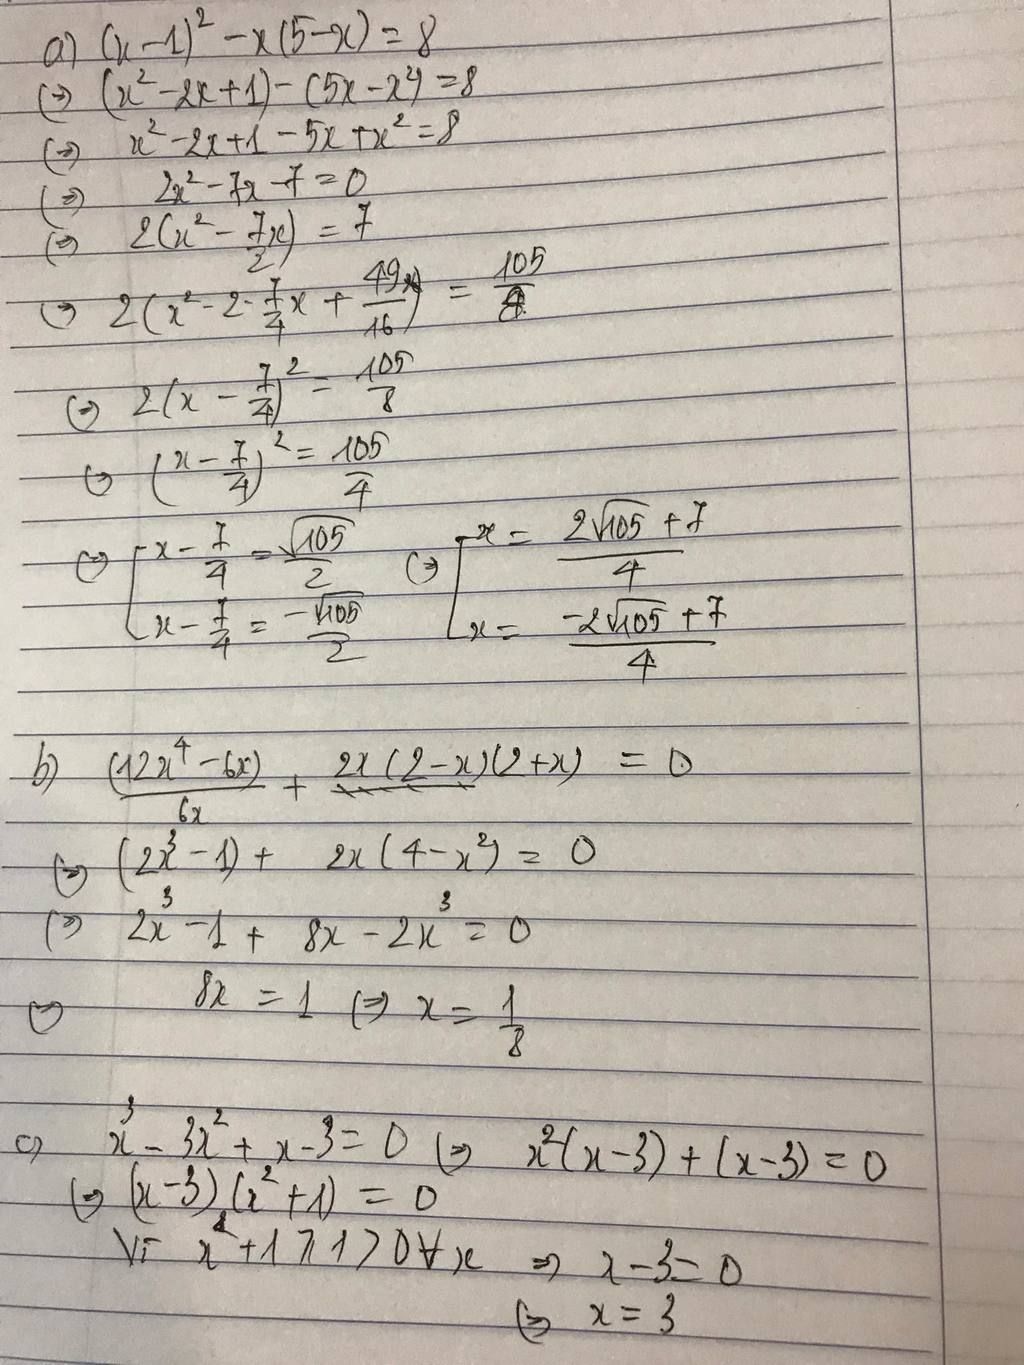 a) (x-1)² - x(5-x) = 8
(=) (x² - 2x + 1) - (5x - x²) = 8
(=) x² - 2x + 1 - 5x + x² = 8
(=) 2x² - 7x - 7 = 0
(=) 2(x² - 7x/2) = 7
(=) 2(x² - 2·7/4 x + 49/16) = 105/8
(=) 2(x - 7/4)² = 105/8
(=) (x - 7/4)² = 105/4
(=) [ x - 7/4 = √105/2 (=) [ x = (2√105 + 7)/4
x - 7/4 = -√105/2 x = (-2√105 + 7)/4
b) (12x⁴ - 6x)/6x + 2x(2-x)(2+x) = 0
(=) (2x³ - 1) + 2x(4 - x²) = 0
(=) 2x³ - 1 + 8x - 2x³ = 0
(=) 8x = 1 (=) x = 1/8
c) x³ - 3x² + x - 3 = 0 (=) x²(x-3) + (x-3) = 0
(=) (x-3)(x²+1) = 0
Vì x² + 1 ≥ 1 > 0 ∀x => x - 3 = 0
(=) x = 3